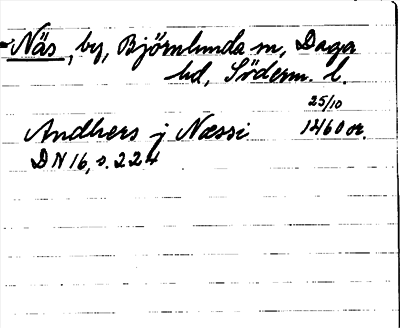 Näs, by, Björnlunda sn, Daga
hd, Söderm. l.
25/10
Andhers j Nässi 1460 or.
DN 16, s. 224